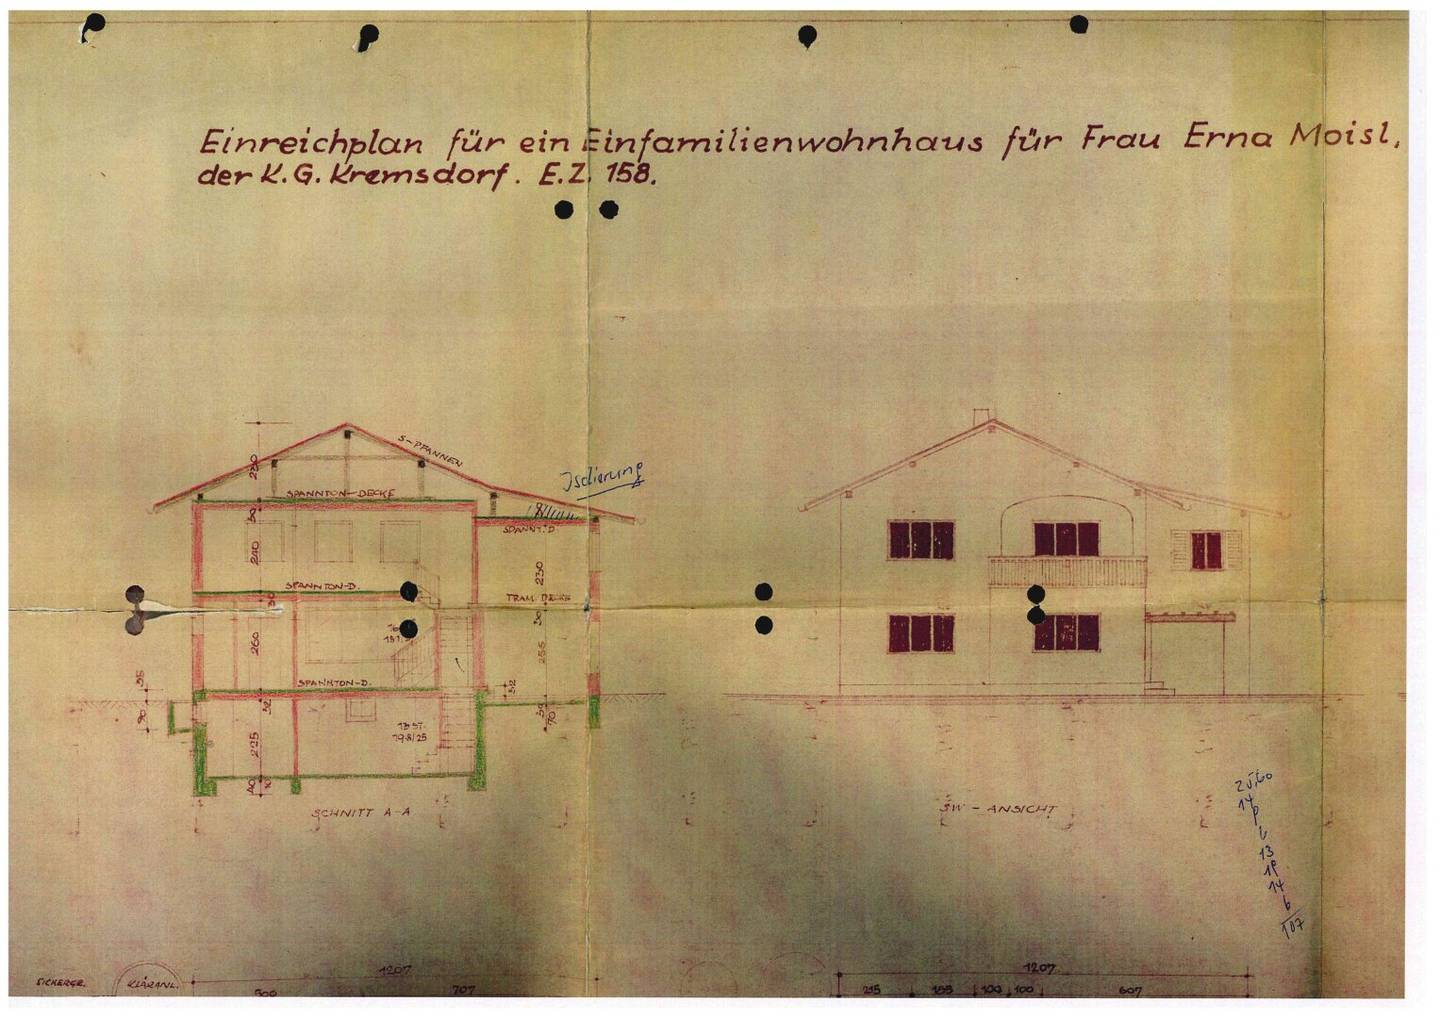 Einreichplan für ein Einfamilienwohnhaus für Frau Erna Moisl,
der K.G. Kremsdorf. E.Z. 158.
S-PFANNEN
Isolierung
SPANNTON-DECKE
SPANNT.D.
240
SPANNTON-D.
230
TRAM. DECKE
30
260
255
SPANNTON-D.
52
90
70
13 ST.
19.8/25
225
40
10
SCHNITT A-A
SW - ANSICHT
14
13
14
107
SICKERGR.
KLÄRANL.
1207
1207
500
707
215
100
100
607